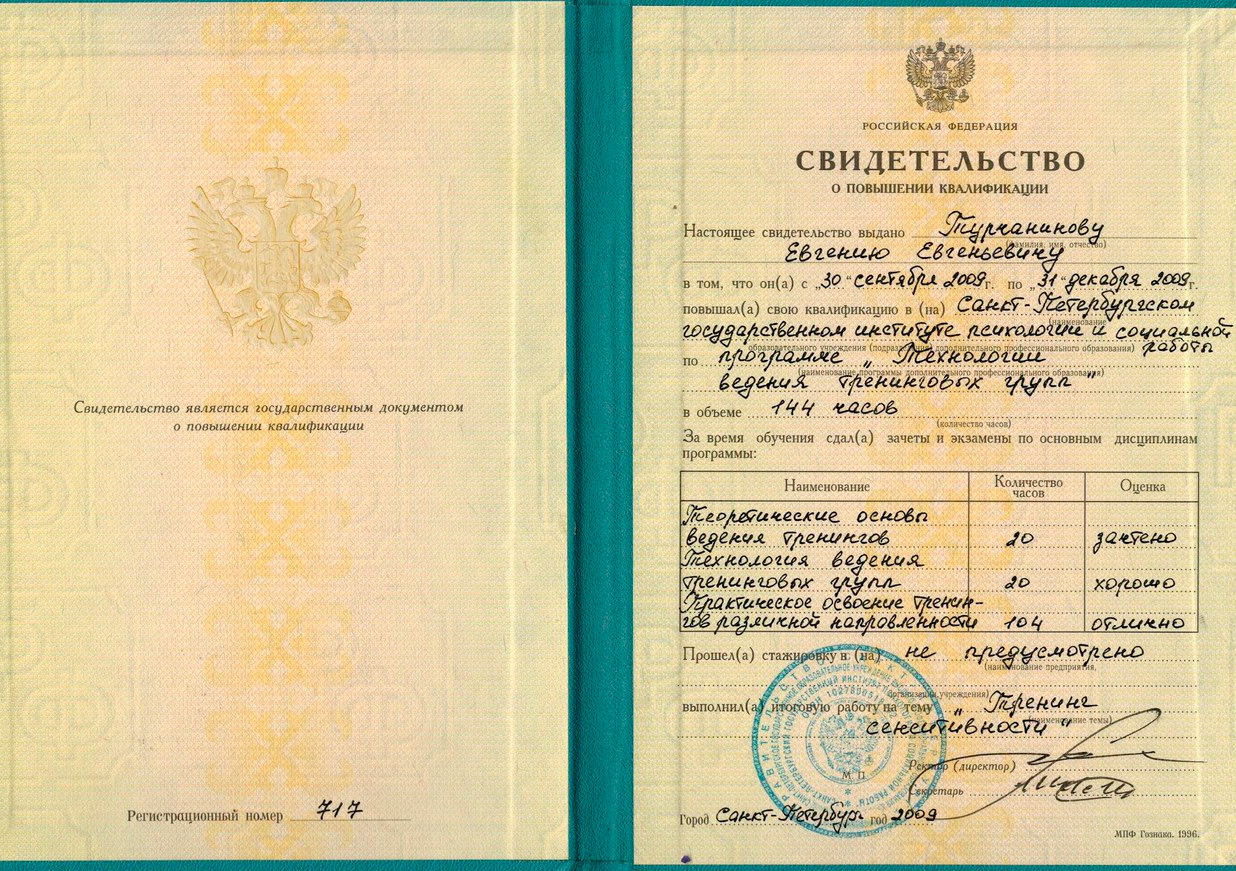 Свидетельство является государственным документом
о повышении квалификации
Регистрационный номер 717
РОССИЙСКАЯ ФЕДЕРАЦИЯ
СВИДЕТЕЛЬСТВО
О ПОВЫШЕНИИ КВАЛИФИКАЦИИ
Настоящее свидетельство выдано Турчанинову
(фамилия, имя, отчество)
Евгению Евгеньевичу
в том, что он(а) с „30“ сентября 2009г. по „31“ декабря 2009г.
повышал(а) свою квалификацию в (на) Санкт-Петербургском
(наименование
государственном институте психологии и социальной
образовательного учреждения (подразделения) дополнительного профессионального образования)
работы
по программе „Технологии
(наименование программы дополнительного профессионального образования)
ведения тренинговых групп“
в объеме 144 часов
(количество часов)
За время обучения сдал(а) зачеты и экзамены по основным дисциплинам
программы:
Наименование Количество часов Оценка
Теоретические основы
ведения тренингов 20 зачтено
Технология ведения
тренинговых групп 20 хорошо
Практическое освоение тренин-
гов различной направленности 104 отлично
Прошел(а) стажировку в (на) не предусмотрено
(наименование предприятия,
организации, учреждения)
выполнил(а) итоговую работу на тему „Тренинг
(наименование темы)
сенситивности“
Ректор (директор)
М П
Секретарь
Город Санкт-Петербург год 2009
МПФ Гознака. 1996.